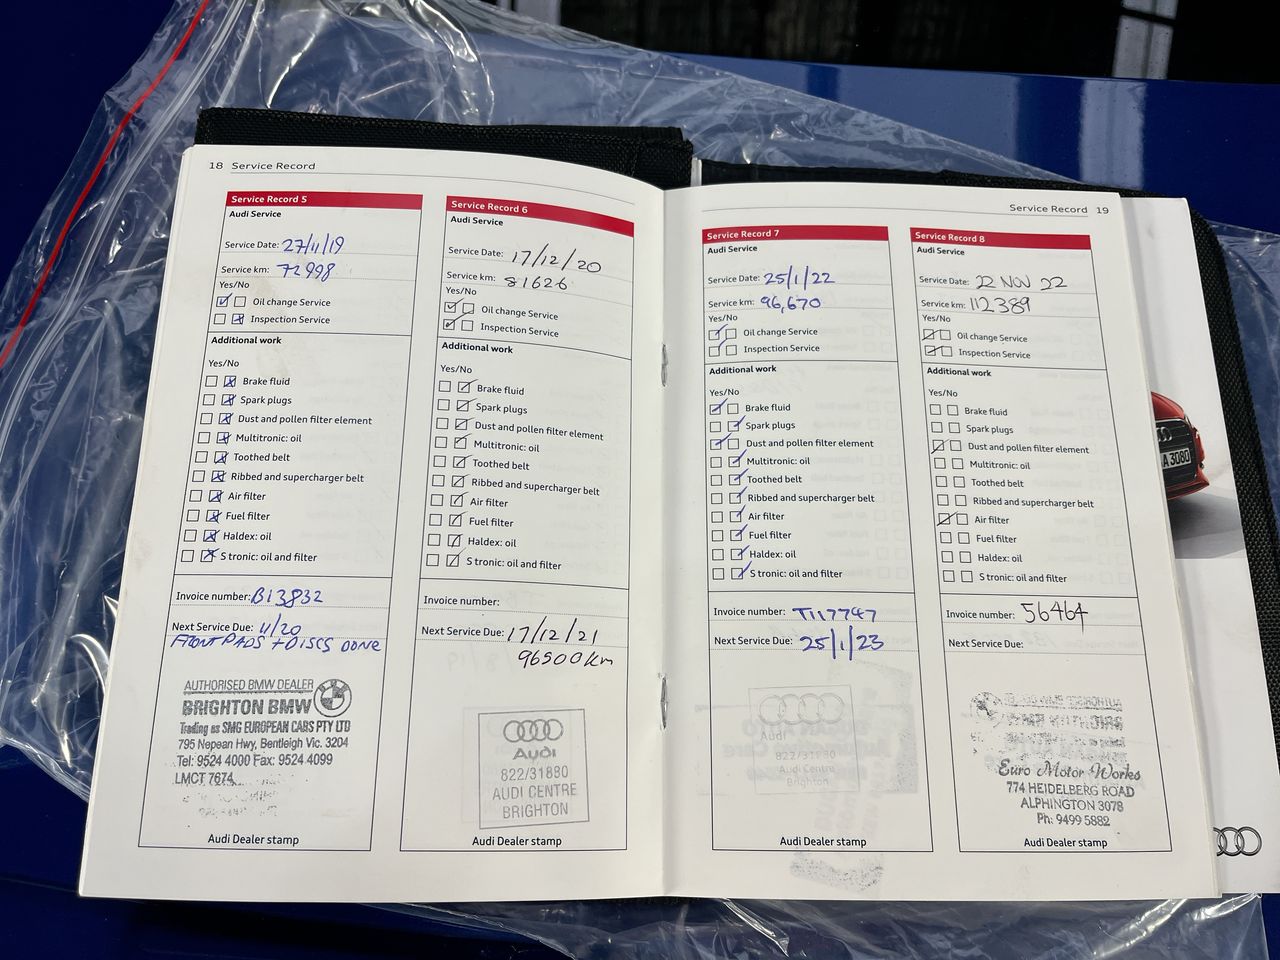 18 Service Record
Service Record 5
Audi Service
Service Date: 27/11/19
Service km: 72998
Yes/No
Oil change Service
Inspection Service
Additional work
Yes/No
Brake fluid
Spark plugs
Dust and pollen filter element
Multitronic: oil
Toothed belt
Ribbed and supercharger belt
Air filter
Fuel filter
Haldex: oil
S tronic: oil and filter
Invoice number: B13832
Next Service Due: 11/20
FRONT PADS + DISCS DONE
AUTHORISED BMW DEALER
BRIGHTON BMW
Trading as SMG EUROPEAN CARS PTY LTD
795 Nepean Hwy, Bentleigh Vic. 3204
Tel: 9524 4000 Fax: 9524 4099
LMCT 7674
Audi Dealer stamp
Service Record 6
Audi Service
Service Date: 17/12/20
Service km: 81626
Yes/No
Oil change Service
Inspection Service
Additional work
Yes/No
Brake fluid
Spark plugs
Dust and pollen filter element
Multitronic: oil
Toothed belt
Ribbed and supercharger belt
Air filter
Fuel filter
Haldex: oil
S tronic: oil and filter
Invoice number:
Next Service Due: 17/12/21
96500km
Audi
822/31880
AUDI CENTRE
BRIGHTON
Audi Dealer stamp
Service Record 19
Service Record 7
Audi Service
Service Date: 25/1/22
Service km: 96,670
Yes/No
Oil change Service
Inspection Service
Additional work
Yes/No
Brake fluid
Spark plugs
Dust and pollen filter element
Multitronic: oil
Toothed belt
Ribbed and supercharger belt
Air filter
Fuel filter
Haldex: oil
S tronic: oil and filter
Invoice number: T117747
Next Service Due: 25/1/23
Audi
822/31880
Audi Centre
Brighton
Audi Dealer stamp
Service Record 8
Audi Service
Service Date: 22 NOV 22
Service km: 112389
Yes/No
Oil change Service
Inspection Service
Additional work
Yes/No
Brake fluid
Spark plugs
Dust and pollen filter element
Multitronic: oil
Toothed belt
Ribbed and supercharger belt
Air filter
Fuel filter
Haldex: oil
S tronic: oil and filter
Invoice number: 56464
Next Service Due:
Euro Motor Works
774 HEIDELBERG ROAD
ALPHINGTON 3078
Ph: 9499 5882
Audi Dealer stamp
A 3080